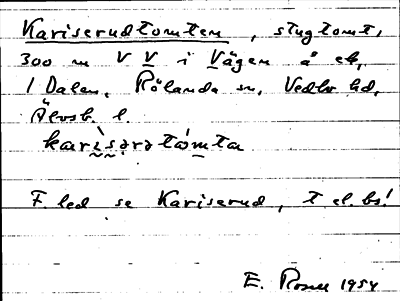 Kariserudtomten, stugtomt,
300 m V V i Vägen å ek,
1 Dalen, Rölanda sn, Vedbo hd,
Älvsb. l.
karìsərətómta
F. led se Kariserud, t el. bs!
E. Rosell 1954